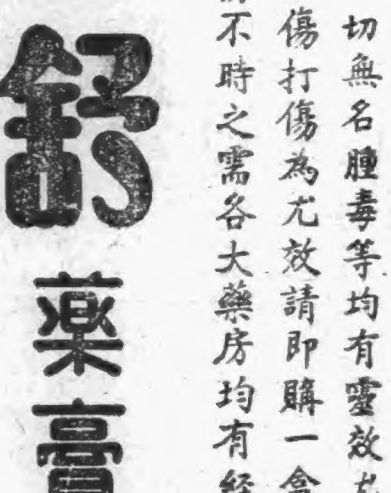 切無名腫毒等均有靈效
傷打傷為尤效請即購一盒
不時之需各大藥房均有経
舒
藥膏